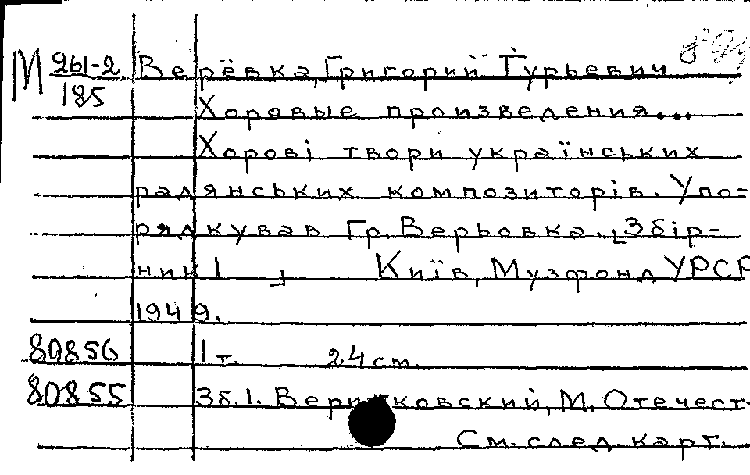 М 261-2 Верёвка, Григорий Гурьевич
185
Хоровые произведения...
Хорові твори українських
радянських композиторів. Упо=
рядкував Гр. Верьовка. [Збір-
ник 1 ] Київ, Музфонд УРСР
1949.
80856 1 т. 24 см.
80855 Зб. 1. Вериковский, М. Отечест-
См. след. карт.